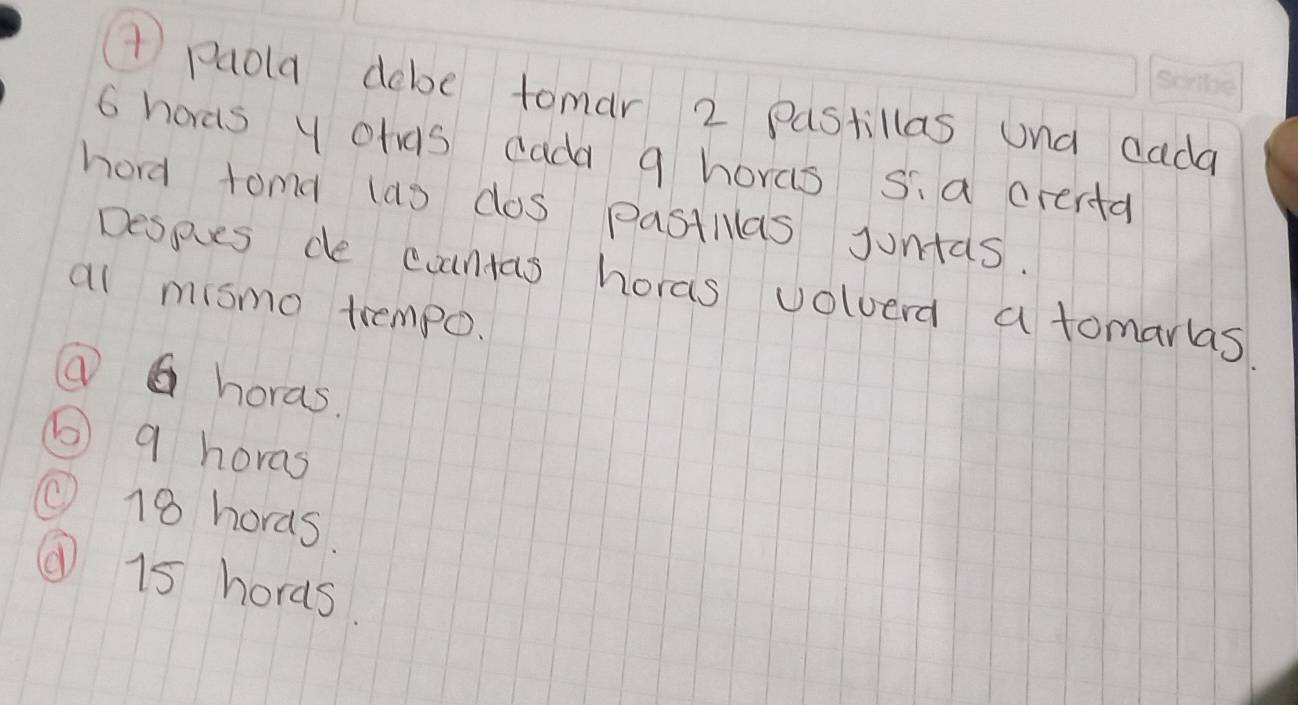 7 Paola debe tomar 2 pastillas una cada
6 horas y otras cada 9 horas si a cierta
hora toma las dos pastillas juntas.
Despues de cuantas horas volvera a tomarlas.
al mismo tiempo.
a 6 horas.
b 9 horas
c 18 horas.
d 15 horas.
Scribe